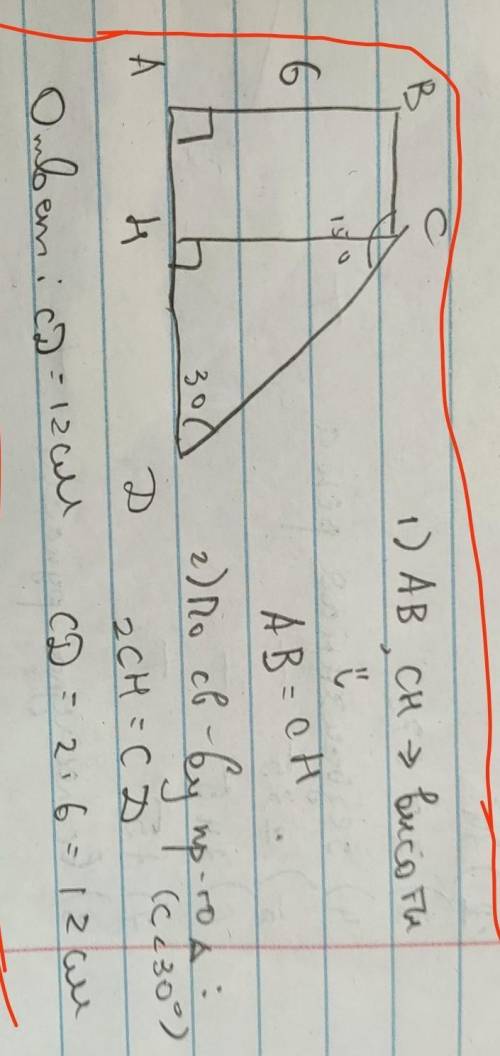 B C
6
150
A H 30 D
1) AB, CH → висоти
AB = CH
2) По св-ву пр-го Δ:
2CH = CD (с <30°)
CD = 2·6 = 12 см
Ответ: CD = 12 см